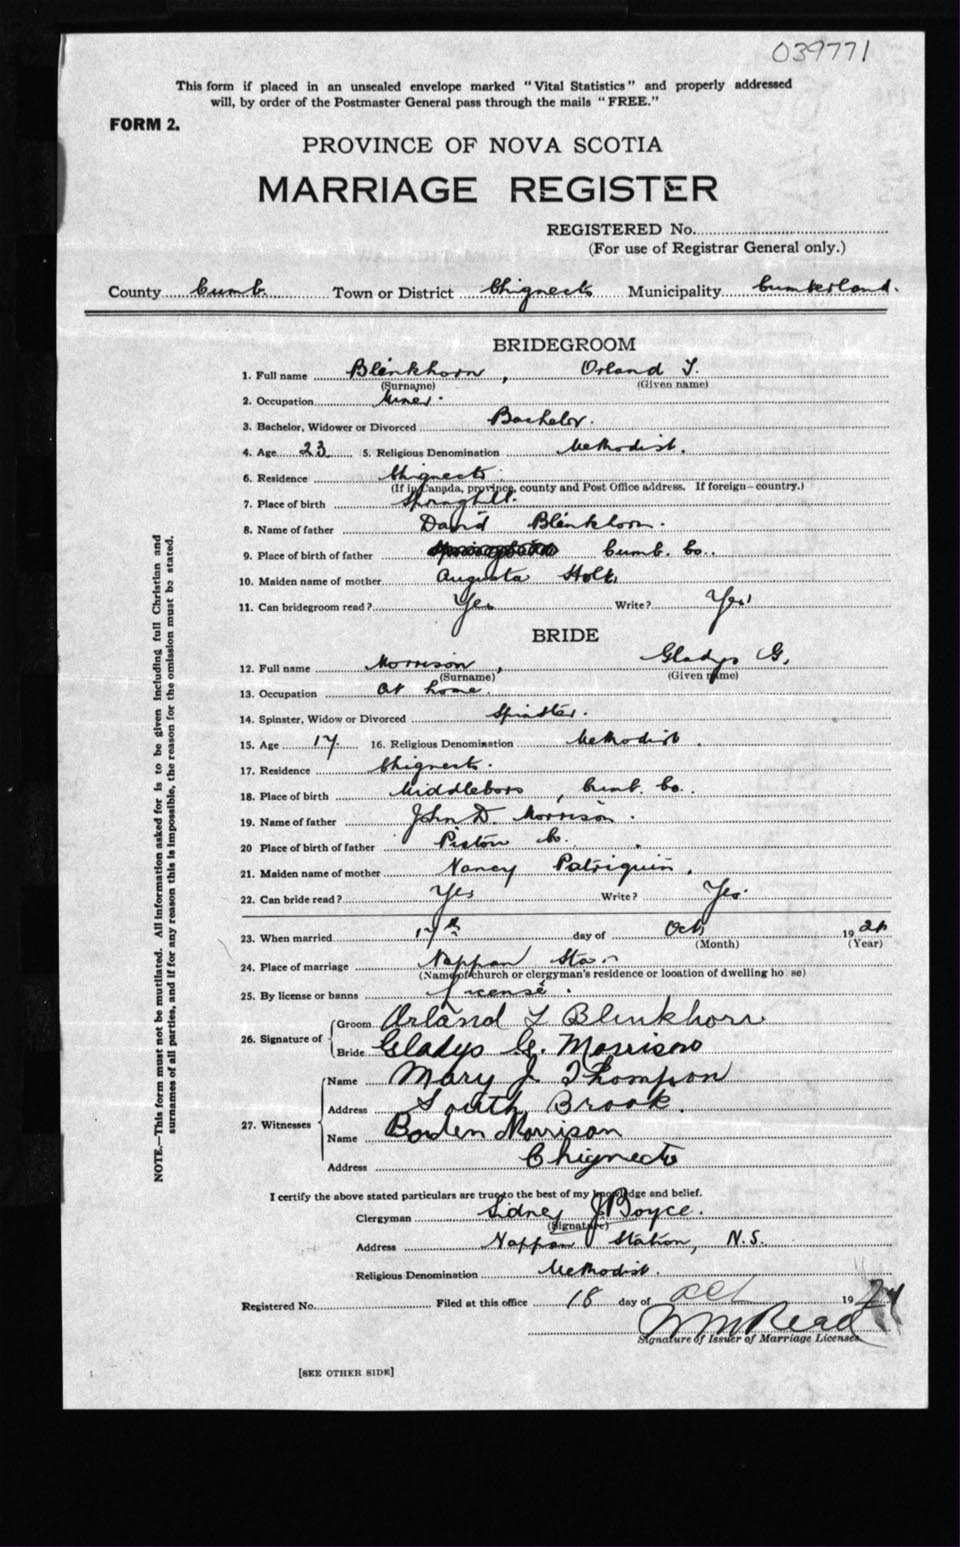 039771
This form if placed in an unsealed envelope marked "Vital Statistics" and properly addressed
will, by order of the Postmaster General pass through the mails "FREE."
FORM 2.
PROVINCE OF NOVA SCOTIA
MARRIAGE REGISTER
REGISTERED No.
(For use of Registrar General only.)
County Cumb. Town or District Chignecto Municipality Cumberland.
BRIDEGROOM
1. Full name Blenkhorn, Orland T.
(Surname) (Given name)
2. Occupation Miner.
3. Bachelor, Widower or Divorced Bachelor.
4. Age 23 5. Religious Denomination Methodist.
6. Residence Chignecto.
(If in Canada, province, county and Post Office address. If foreign—country.)
7. Place of birth Springhill.
8. Name of father David Blenkhorn.
9. Place of birth of father Cumb. Co..
10. Maiden name of mother Augusta Holt
11. Can bridegroom read? Yes Write? Yes
BRIDE
12. Full name Morrison, Gladys G.
(Surname) (Given name)
13. Occupation At home.
14. Spinster, Widow or Divorced Spinster.
15. Age 17. 16. Religious Denomination Methodist.
17. Residence Chignecto.
18. Place of birth Middleboro, Cumb. Co..
19. Name of father John D. Morrison.
20 Place of birth of father Pictou Co.
21. Maiden name of mother Nancy Patriquin.
22. Can bride read? Yes Write? Yes.
23. When married 17th day of Oct 19
(Month) (Year)
24. Place of marriage Nappan Sta
(Name of church or clergyman's residence or location of dwelling house)
25. By license or banns License.
26. Signature of Groom Orland T Blenkhorn.
Bride Gladys G. Morrison
27. Witnesses Name Mary J. Thompson
Address South Brook.
Name Borden Morrison
Address Chignecto
I certify the above stated particulars are true to the best of my knowledge and belief.
Clergyman Sidney J Boyce.
(Signature)
Address Nappan Station, N.S.
Religious Denomination Methodist.
Registered No. Filed at this office 18 day of Oct 19
W M Read
Signature of Issuer of Marriage Licenses.
[SEE OTHER SIDE]
NOTE.—This form must not be mutilated. All information asked for is to be given including full Christian and
surnames of all parties, and if for any reason this is impossible, the reason for the omission must be stated.